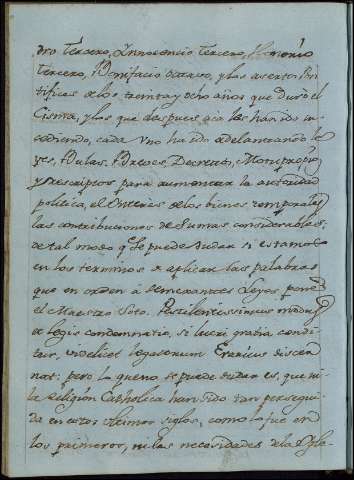 dro tercero, Innocencio tercero, Honorio
tercero, Bonifacio octavo, y los asertos Pon
tifices de los treinta y ocho años que duró el
Cisma, y los que despues aca les han ido su
cediendo, cada uno ha ido adelantando le
yes, Bulas, Breves, Decretos, Motu proprios
y rescriptos para aumentar la autoridad
politica, el Interes de los bienes temporales
las contribuciones de sumas considerables
de tal modo q̃ se puede dudar si estamos
en los terminos de aplicar las palabras
que en orden à semejantes Leyes pone
el Maestro Soto. Pestilentissimus modus
legis condemnatio, si lucri gratia condi
tair, videlicet legatorum Erarius
nat: pero lo que no se puede dudar es, que ni
la Religion Catholica han sido tan persegui
da en estos ultimos siglos, como lo fue en
los primeros, ni las necesidades de la Igle-